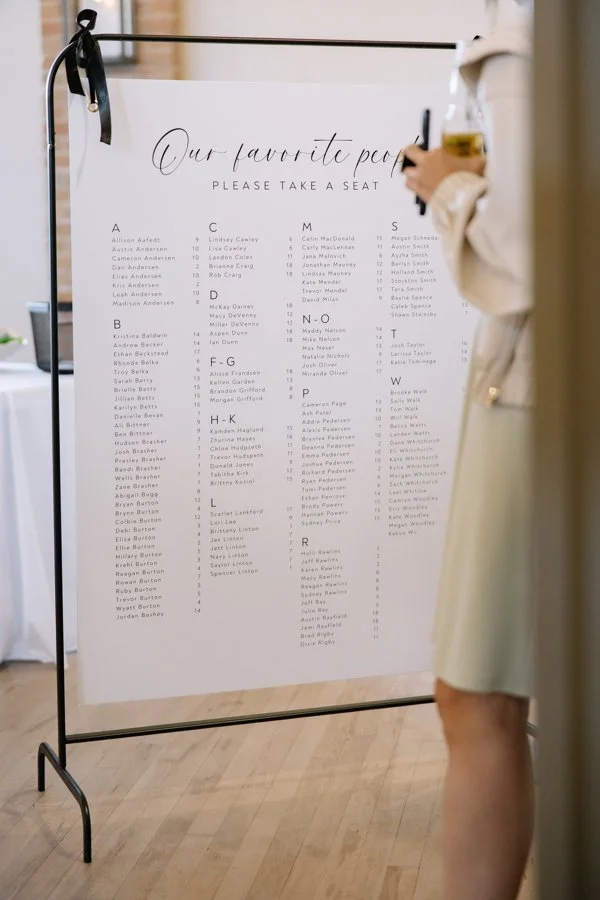 Our favorite peop
PLEASE TAKE A SEAT
A
Allison Aafedt 9
Austin Andersen 10
Cameron Andersen 10
Dan Andersen 2
Elias Andersen 10
Kris Andersen 2
Leah Andersen 10
Madison Andersen 8
B
Kristina Baldwin 14
Andrew Becker 14
Ethan Beckstead 17
Rhonda Belka 6
Troy Belka 6
Sarah Berry 13
Brielle Betts 15
Jillian Betts 15
Karilyn Betts 15
Danielle Bevan 1
Ali Bittner 9
Ben Bittner 9
Hudson Brasher 7
Josh Brasher 1
Presley Brasher 7
Randi Brasher 1
Wells Brasher 7
Zane Brasher 7
Abigail Bugg 8
Bryan Burton 12
Brynn Burton 4
Colbie Burton 12
Debi Burton
Eliza Burton
Ellie Burton
Hillary Burton
Krehl Burton
Reagan Burton
Rowan Burton 7
Ruby Burton 5
Trevor Burton 4
Wyatt Burton 4
Jordan Bushey 14
C
Lindsey Cawley 6
Lisa Cawley 6
Landon Coles 11
Brianna Craig 18
Rob Craig 18
D
McKay Daines 18
Macy DeVenny 12
Miller DeVenny 12
Aspen Dunn 18
Ian Dunn 18
F-G
Alisse Frandsen 18
Kellen Garden 13
Brandon Grifford 8
Morgan Grifford 8
H-K
Kamden Haglund 15
Zhurina Hayes 16
Chloe Hudpseth
Trevor Hudspeth
Donald Jones
Tabitha Kirk 12
Britney Koziol 15
L
Scarlet Lankford 17
Lori Lee 9
Brittany Linton 1
Jax Linton 7
Jett Linton 7
Navy Linton 7
Taylor Linton 1
Spencer Linton 1
M
Celin MacDonald 15
Carly MacLennan 17
Jana Malovich 6
Jonathan Mauney 12
Lindsay Mauney 12
Kate Mender 17
Trevor Mendel 17
David Milan 9
N-O
Maddy Nelson 14
Mike Nelson 14
Max Neser
Natalie Nichols
Josh Oliver 17
Miranda Oliver 17
P
Cameron Page
Ash Patel
Addie Pedersen
Alexis Pedersen
Brynlee Pedersen
Deanna Pedersen
Emma Pedersen
Joshua Pedersen
Richard Pedersen
Ryan Pedersen
Tami Pedersen
Ethan Penrose
Brody Powers
Hannah Powers
Sydney Price
R
Holli Rawlins 2
Jeff Rawlins 2
Karen Rawlins 2
Macy Rawlins
Reagan Rawlins
Sydney Rawlins
Jeff Ray 5
Julie Ray 5
Austin Rayfield 18
Jami Rayfield 18
Brad Rigby 11
Dixie Rigby 11
S
Megan Schneda
Austin Smith
Ayzha Smith
Berlyn Smith
Holland Smith
Stockton Smith
Tera Smith
Baylie Spence
Caleb Spence
Shawn Stainsby
T
Josh Taylor 16
Larissa Taylor 16
Katie Tuminaga 13
W
Brooke Walk
Sally Walk
Tom Walk
Will Walk
Becca Watts
Landen Watts
Dane Whitchurch
Eli Whitchurch
Kate Whitchurch
Kylie Whitchurch
Morgan Whitchurch
Zach Whitchurch
Lael Whitlow
Camryn Woodley
Eric Woodley
Kate Woodley
Megan Woodley